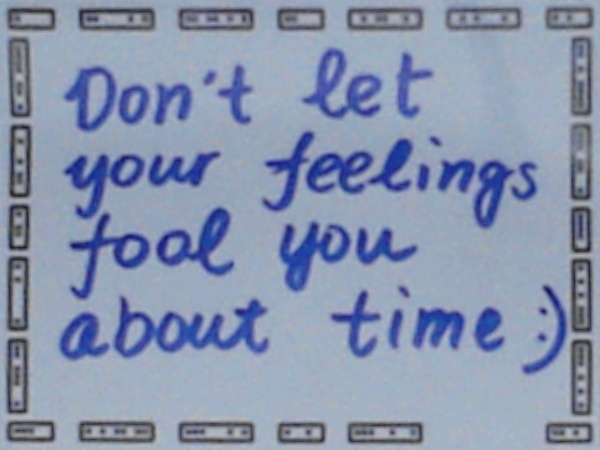 Don't let
your feelings
fool you
about time :)